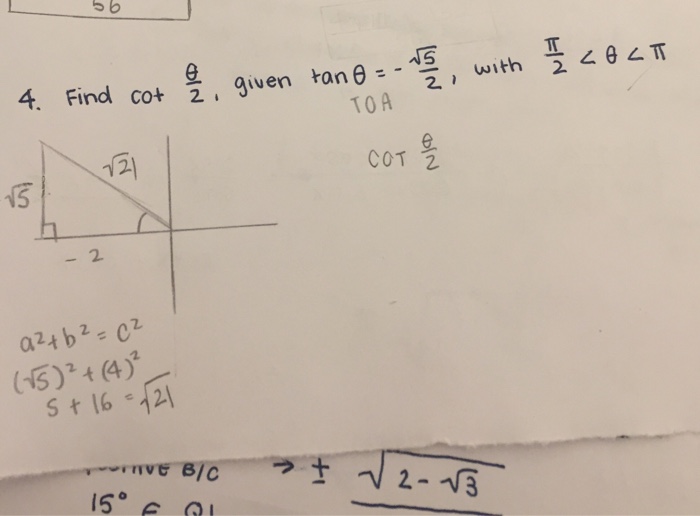 56
4. Find cot θ/2, given tan θ = - √5/2, with π/2 < θ < π
TOA
COT θ/2
√21
√5
- 2
a² + b² = c²
(√5)² + (4)²
5 + 16 = √21
B/C → ± √2 - √3
15° ∈ QI